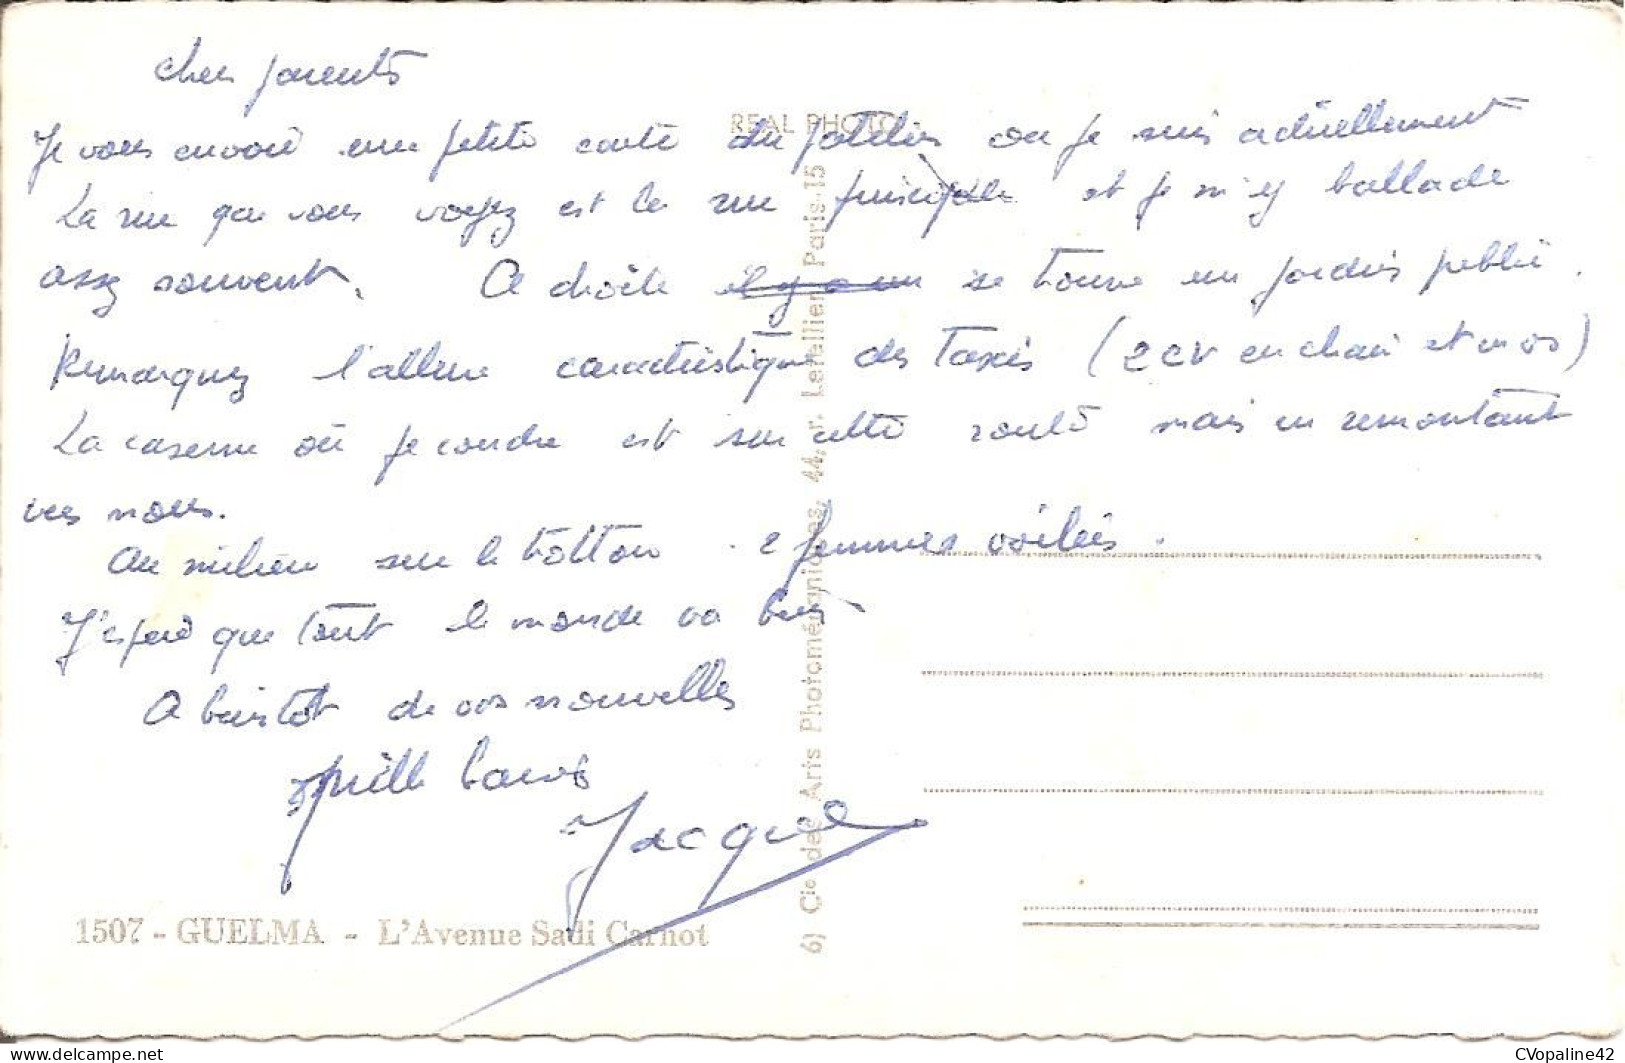 Chers parents
Je vous envoie une petite carte du patelin où je suis actuellement
La rue que vous voyez est la rue principale et je m'y ballade
assez souvent. A droite il y a un se trouve un jardin public.
Remarquez l'allure caractéristique des taxis (2 CV en chair et en os)
La caserne où je couche est sur cette route mais en remontant
vers nous.
Au milieu sur le trottoir . 2 femmes voilées.
J'espère que tout le monde va bien
A bientôt de vos nouvelles
Mille baisers
Jacques
REAL PHOTO
6) Cie des Arts Photomécaniques, 44, r. Letellier, Paris-15
1507 - GUELMA - L'Avenue Sadi Carnot
CVopaline42